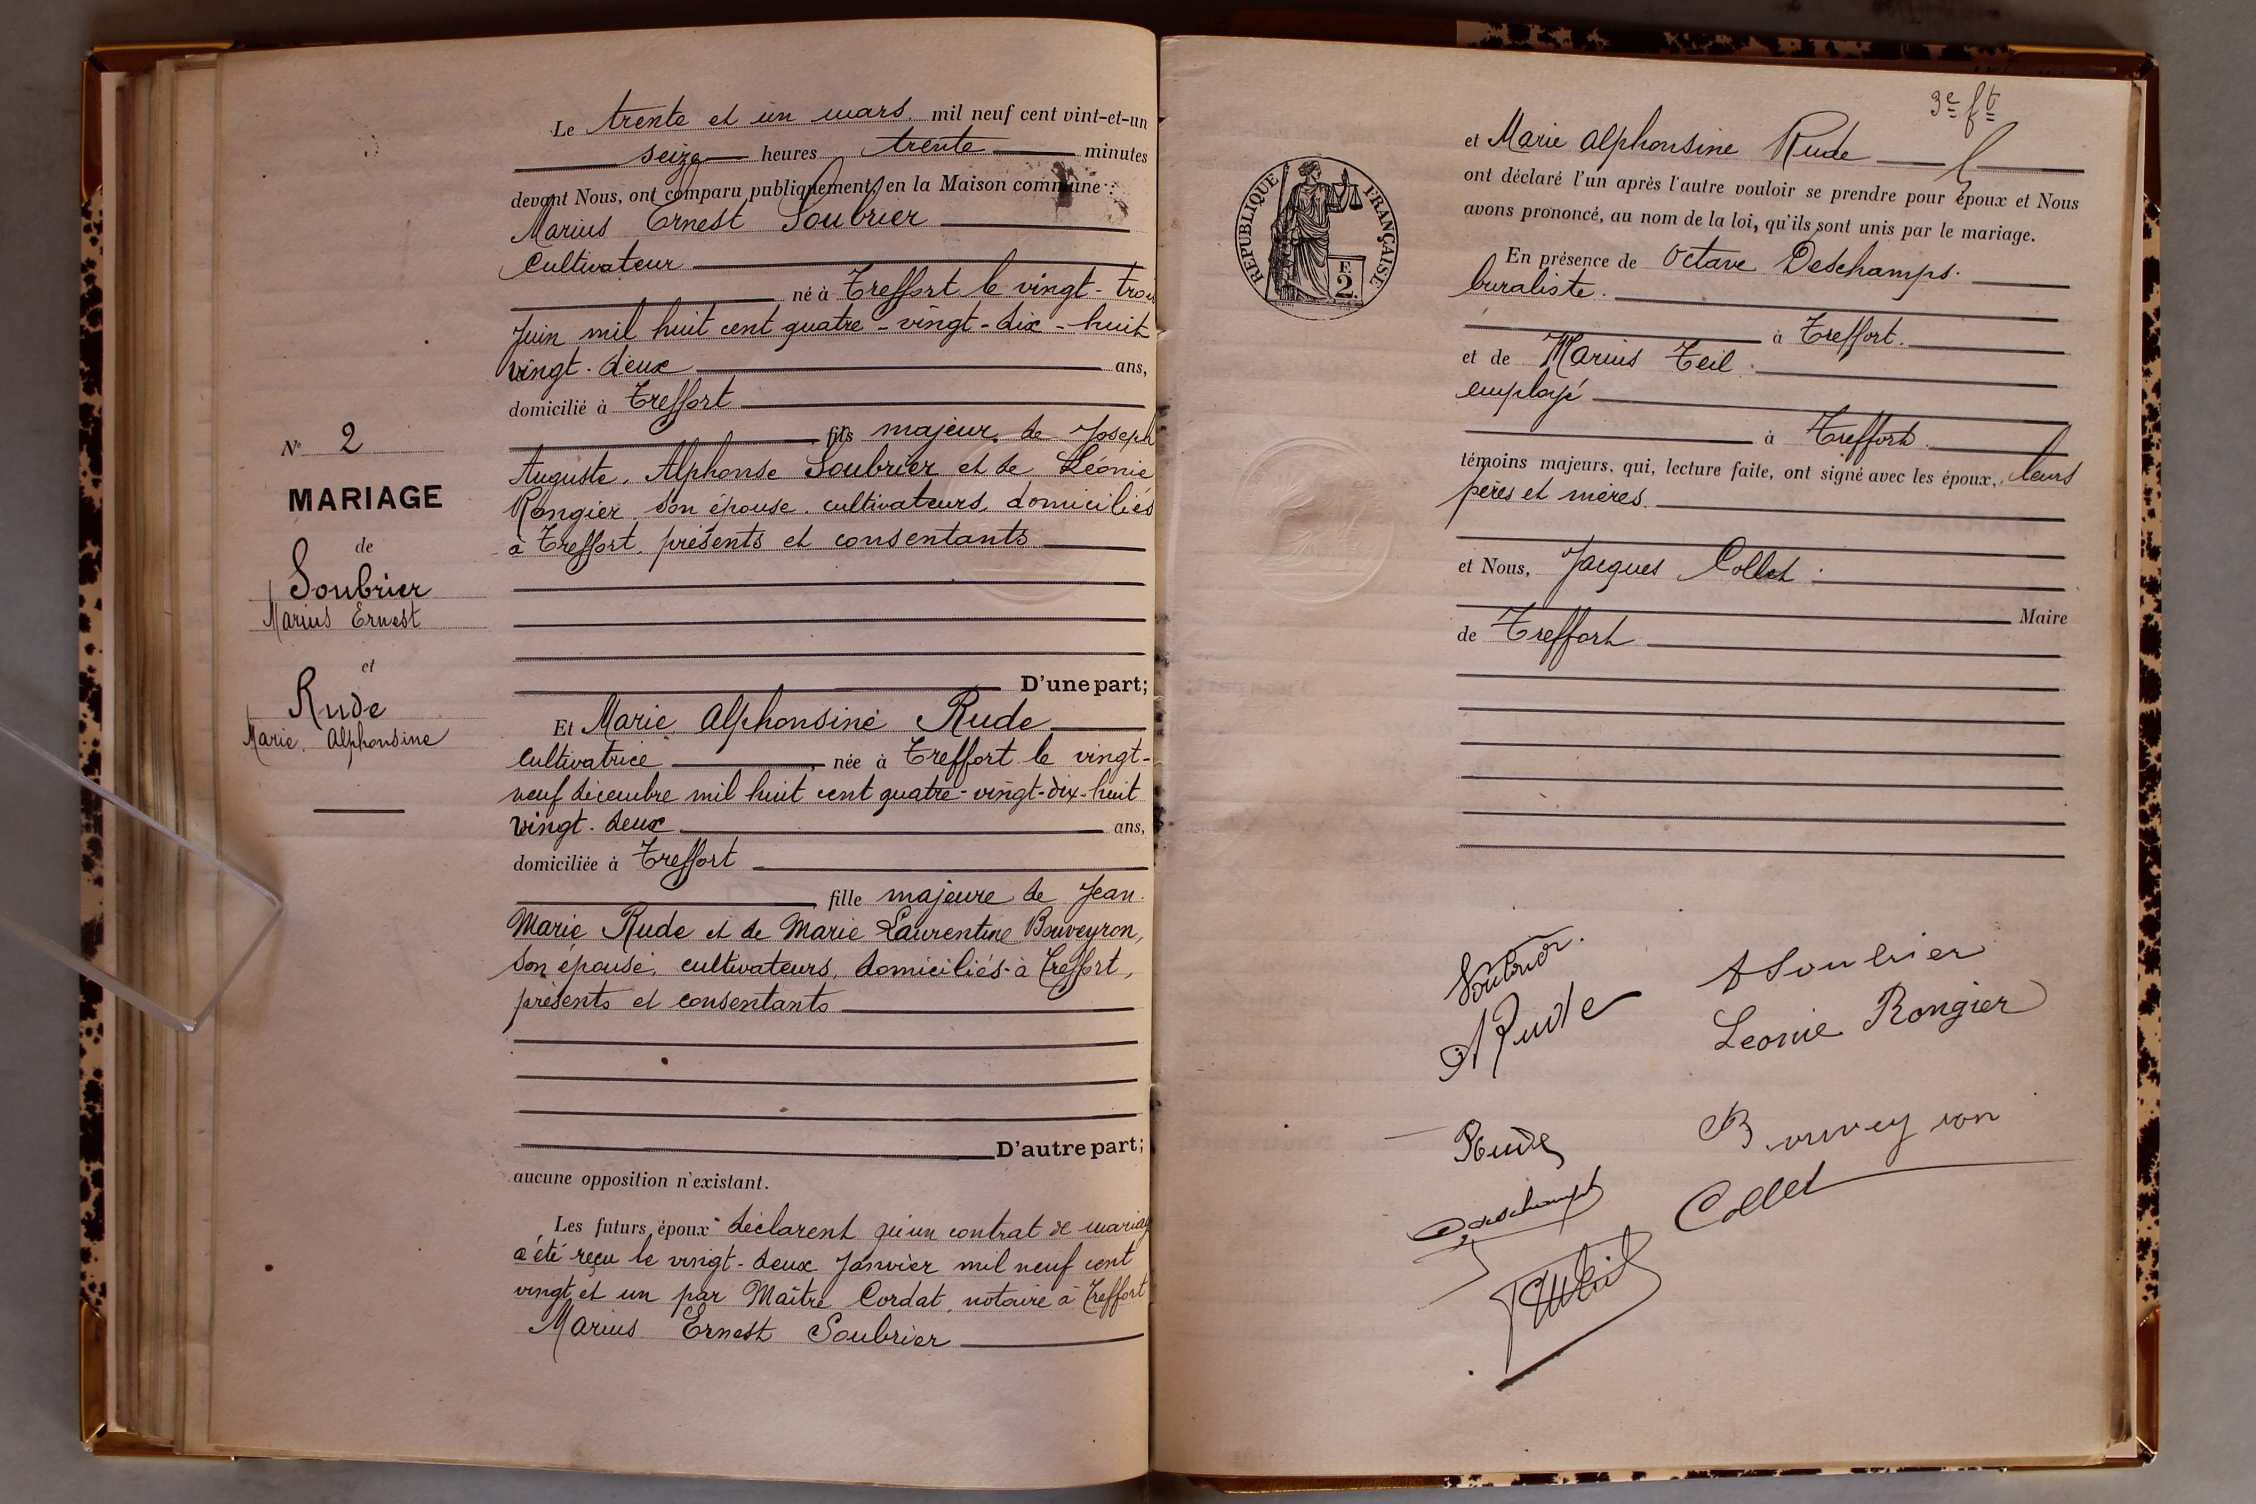 N° 2
MARIAGE
de
Soubrier
Marius Ernest
et
Rude
Marie Alphonsine
Le trente et un mars mil neuf cent vint-et-un
seize heures trente minutes
devant Nous, ont comparu publiquement, en la Maison commune :
Marius Ernest Soubrier
Cultivateur
né à Treffort le vingt-trois
Juin mil huit cent quatre-vingt-dix-huit
vingt-deux ans,
domicilié à Treffort
fils majeur de Joseph
Auguste, Alphonse Soubrier et de Léonie
Rongier son épouse cultivateurs domiciliés
à Treffort, présents et consentants
D'une part;
Et Marie Alphonsine Rude
Cultivatrice, née à Treffort le vingt-
neuf décembre mil huit cent quatre-vingt-dix-huit
vingt-deux ans,
domiciliée à Treffort
fille majeure de Jean
Marie Rude et de Marie Laurentine Bouveyron,
son épouse, cultivateurs, domiciliés à Treffort,
présents et consentants
D'autre part;
aucune opposition n'existant.
Les futurs époux déclarent qu'un contrat de mariage
a été reçu le vingt-deux Janvier mil neuf cent
vingt et un par Maître Cordat, notaire à Treffort
Marius Ernest Soubrier
3e ft
REPUBLIQUE FRANÇAISE
F.
2.
et Marie Alphonsine Rude
ont déclaré l'un après l'autre vouloir se prendre pour époux et Nous
avons prononcé, au nom de la loi, qu'ils sont unis par le mariage.
En présence de Octave Deschamps.
buraliste.
à Treffort.
et de Marius Teil
employé
à Treffort.
témoins majeurs, qui, lecture faite, ont signé avec les époux, leurs
pères et mères.
et Nous, Jacques Collet
Maire
de Treffort
Soubrier.
A Soubrier
A Rude
Leonie Rongier
Rude
Bouveyron
Deschamps
Collet
Teil